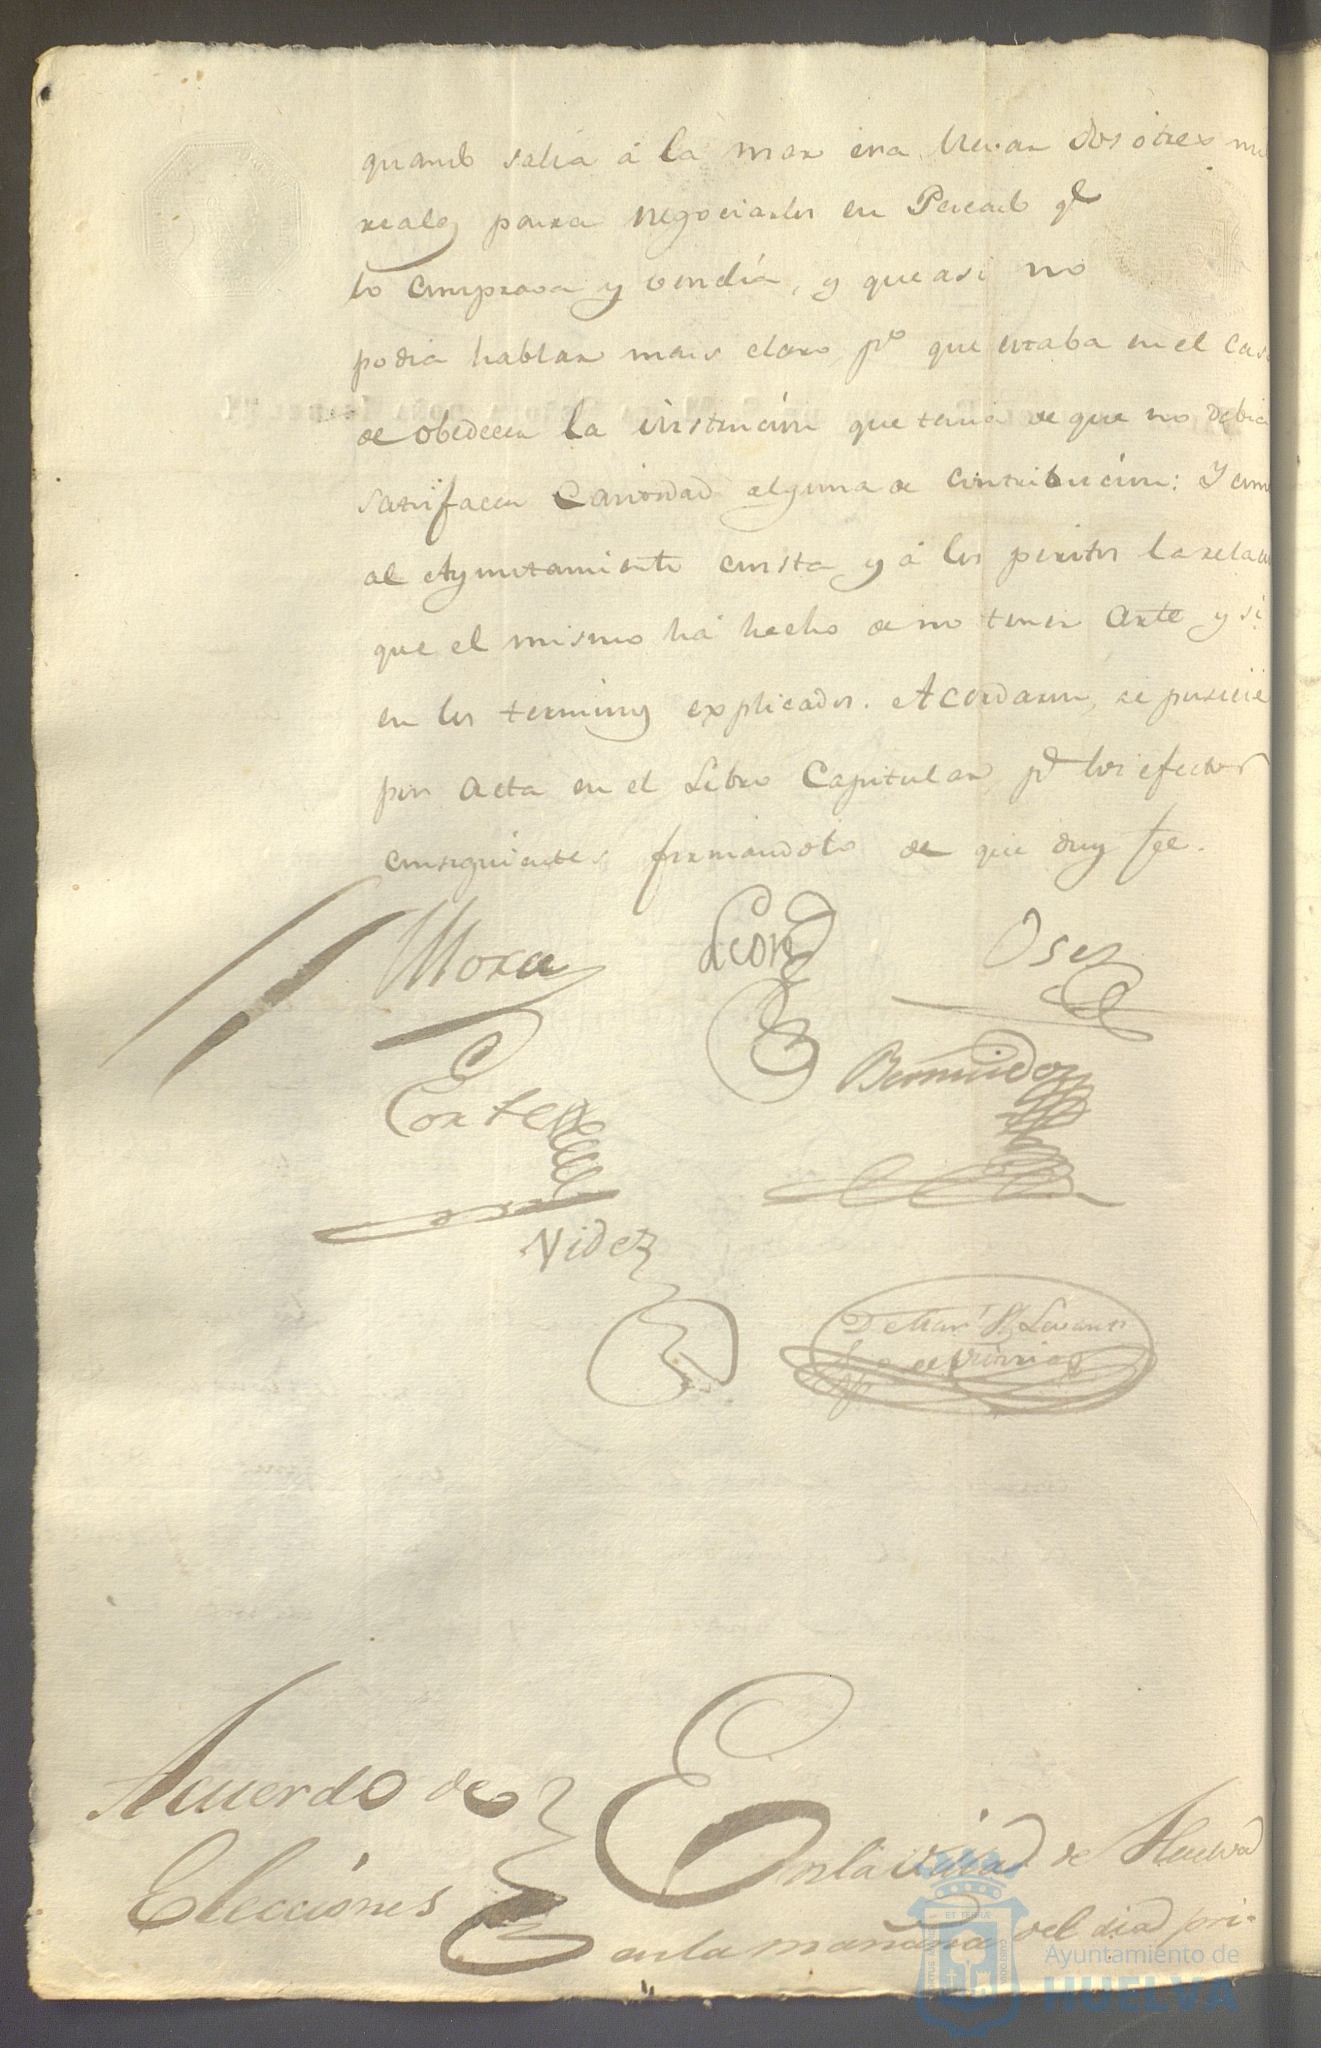 quando salia á la mar era llevar dos ó tres
reales para negociarlos en Pescado qe
lo comprava y vendía, y que asi no
podia hablar mais claro po que estaba en el Caso
de obedecer la instrucion que tenia de que no debia
satisfacer Cantidad alguna de contribucion: Y como
al Ayuntamiento consta y á los peritos la
que el mismo há hecho de no tener arte y si
en los terminos explicados. Acordaron, se pusiese
por acta en el Libro Capitular pa los efectos
consiguientes firmandolo de que doy fee.
Mora Leon
Cortes Bermudez
Videz
Acuerdo de
Elecciones
En la de Huelva
en la mañana del dia pri-
Ayuntamiento de
HUELVA